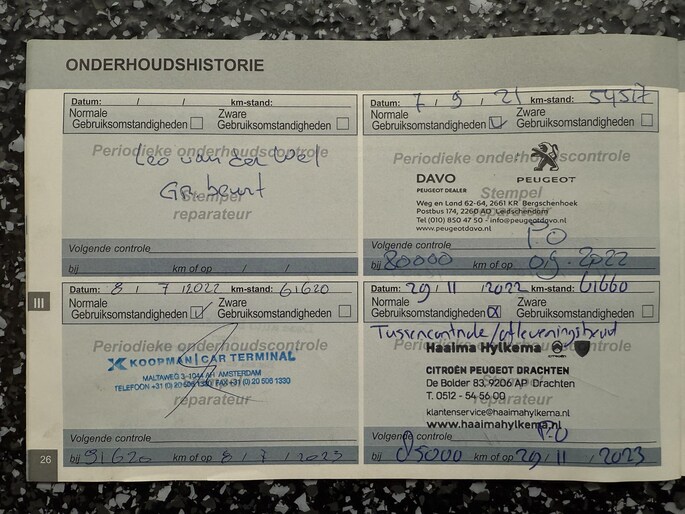 ONDERHOUDSHISTORIE
Datum: / / km-stand:
Normale Gebruiksomstandigheden
Zware Gebruiksomstandigheden
Periodieke onderhoudscontrole
Leo van der Wel
GR. beurt
Stempel
reparateur
Volgende controle
bij km of op / /
Datum: 7 / 9 / 21 km-stand: 54517
Normale Gebruiksomstandigheden
Zware Gebruiksomstandigheden
Periodieke onderhoudscontrole
DAVO
PEUGEOT DEALER
PEUGEOT
Stempel
Weg en Land 62-64, 2661 KR Bergschenhoek
Postbus 174, 2260 AD Leidschendam
Tel (010) 850 47 50 - info@peugeotdavo.nl
www.peugeotdavo.nl
reparateur
Volgende controle
bij 80000 km of op 09 - 2022
III
Datum: 8 / 7 / 2022 km-stand: 61620
Normale Gebruiksomstandigheden
Zware Gebruiksomstandigheden
Periodieke onderhoudscontrole
KOOPMAN CAR TERMINAL
MALTAWEG 3-1044 AH AMSTERDAM
TELEFOON +31 (0) 20 506 1330 FAX +31 (0) 20 506 1330
reparateur
Volgende controle
bij 91620 km of op 8 / 7 / 2023
Datum: 29 / 11 / 2022 km-stand: 61660
Normale Gebruiksomstandigheden
Zware Gebruiksomstandigheden
Tussencontrole/afleveringsbeurt
Periodieke onderhoudscontrole
Haaima Hylkema
CITROËN PEUGEOT DRACHTEN
De Bolder 83, 9206 AP Drachten
T. 0512 - 54 56 00
klantenservice@haaimahylkema.nl
www.haaimahylkema.nl
reparateur
Volgende controle
bij 85000 km of op 29 / 11 / 2023
26